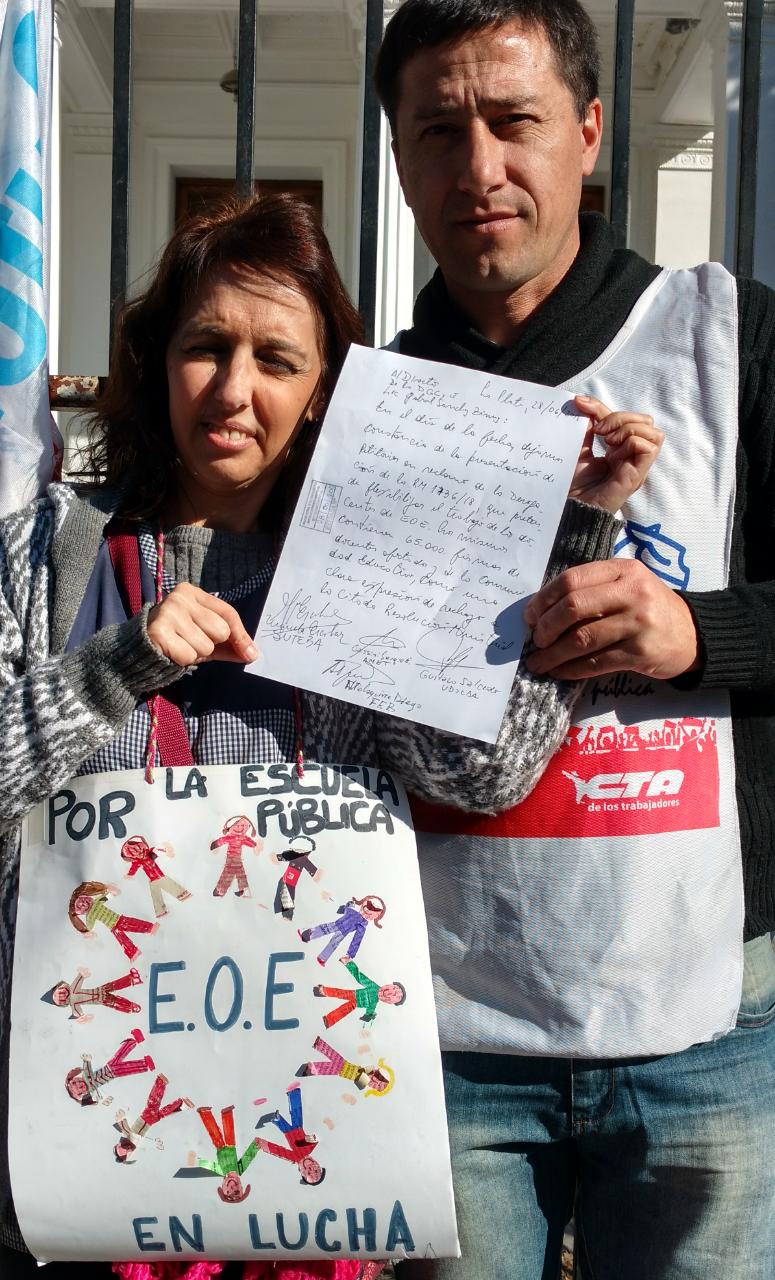 La Plata, 28/06/
Al Director
de la DGC y E
Lic Gabriel Sanchez Zinny:
En el día de la fecha, dejamos
constancia de la presentación de
Petitorio en reclamo de la Deroga-
ción de la RM 1736/18, que preten-
de flexibilizar el trabajo de los do-
centes de EOE. Los mismos
contienen 65.000 firmas de
docentes afectados y de la Comuni-
dad Educativa, como una
clara expresión de rechazo a
la citada Resolución Ministerial
SUTEBA
AMET
Gustavo Salcedo
UDOCBA
Diego
FEB
pública
CTA
de los trabajadores
POR LA ESCUELA
PÚBLICA
E.O.E
EN LUCHA